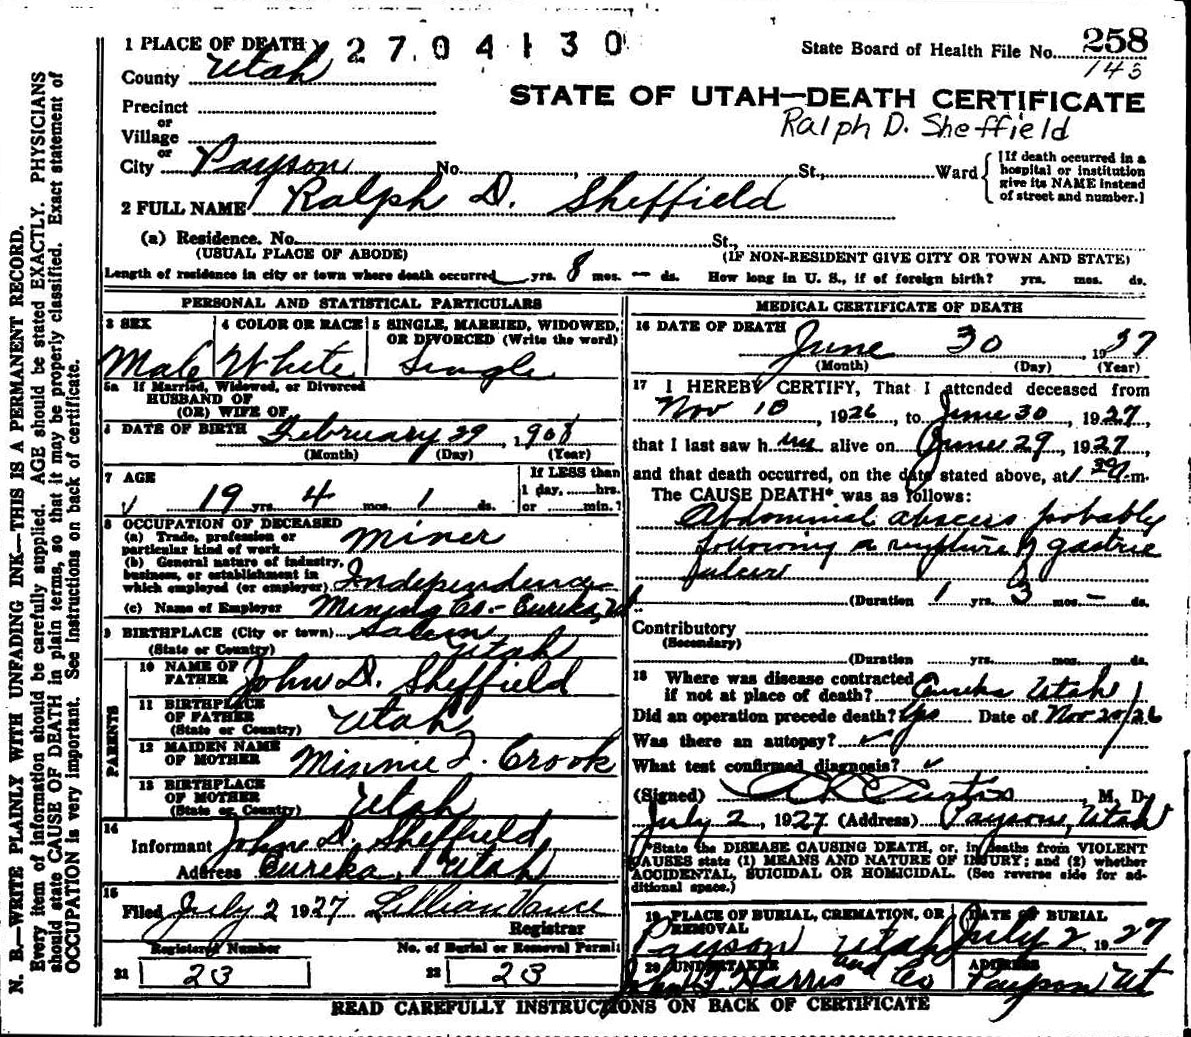 1 PLACE OF DEATH 2 7 0 4 1 3 0
State Board of Health File No. 258
143
County Utah
STATE OF UTAH—DEATH CERTIFICATE
Ralph D. Sheffield
Precinct
or
Village
or
City Payson No. , St., Ward
[If death occurred in a hospital or institution give its NAME instead of street and number.]
2 FULL NAME Ralph D. Sheffield
(a) Residence. No. St.,
(USUAL PLACE OF ABODE) (IF NON-RESIDENT GIVE CITY OR TOWN AND STATE)
Length of residence in city or town where death occurred yrs. 8 mos. — ds. How long in U. S., if of foreign birth? yrs. mos. ds.
PERSONAL AND STATISTICAL PARTICULARS
3 SEX 4 COLOR OR RACE 5 SINGLE, MARRIED, WIDOWED, OR DIVORCED (Write the word)
Male White Single
5a If Married, Widowed, or Divorced
HUSBAND OF
(OR) WIFE OF
6 DATE OF BIRTH February 29, 1908
(Month) (Day) (Year)
7 AGE If LESS than
1 day, hrs.
19 yrs. 4 mos. 1 ds. or min.?
8 OCCUPATION OF DECEASED
(a) Trade, profession or
particular kind of work Miner
(b) General nature of industry,
business, or establishment in
which employed (or employer) Independence
(c) Name of Employer Mining Co - Eureka, Ut.
9 BIRTHPLACE (City or town) Salem
(State or Country) Utah
PARENTS
10 NAME OF
FATHER John D. Sheffield
11 BIRTHPLACE
OF FATHER Utah
(State or Country)
12 MAIDEN NAME
OF MOTHER Minnie J. Crook
13 BIRTHPLACE
OF MOTHER Utah
(State or Country)
14
Informant John D. Sheffield
Address Eureka, Utah
15
Filed July 2 1927 Lillian Vance
Registrar
Registered Number No. of Burial or Removal Permit
21 23 22 23
MEDICAL CERTIFICATE OF DEATH
16 DATE OF DEATH June 30, 1927
(Month) (Day) (Year)
17 I HEREBY CERTIFY, That I attended deceased from
Nov 10, 1926, to June 30, 1927,
that I last saw him alive on June 29, 1927,
and that death occurred, on the date stated above, at 1 30 m.
The CAUSE DEATH* was as follows:
Abdominal abscess probably
following a rupture of gastric
ulcer
(Duration 1 yrs. 3 mos. — ds.
Contributory
(Secondary)
(Duration yrs. mos. ds.
18 Where was disease contracted
if not at place of death? Eureka Utah
Did an operation precede death? Yes Date of Nov 20/26
Was there an autopsy? ✓
What test confirmed diagnosis? ✓
(Signed) M. D.
July 2, 1927 (Address) Payson, Utah
*State the DISEASE CAUSING DEATH, or, in deaths from VIOLENT
CAUSES state (1) MEANS AND NATURE OF INJURY; and (2) whether
ACCIDENTAL, SUICIDAL OR HOMICIDAL. (See reverse side for ad-
ditional space.)
19 PLACE OF BURIAL, CREMATION, OR REMOVAL DATE OF BURIAL
Payson Utah July 2, 1927
20 UNDERTAKER ADDRESS
Harris and Co Payson Ut
READ CAREFULLY INSTRUCTIONS ON BACK OF CERTIFICATE
N. B.—WRITE PLAINLY WITH UNFADING INK—THIS IS A PERMANENT RECORD.
Every item of information should be carefully supplied. AGE should be stated EXACTLY. PHYSICIANS
should state CAUSE OF DEATH in plain terms, so that it may be properly classified. Exact statement of
OCCUPATION is very important. See instructions on back of certificate.